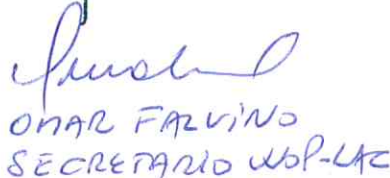 OMAR FALVINO
SECRETARIO WSP-LAC